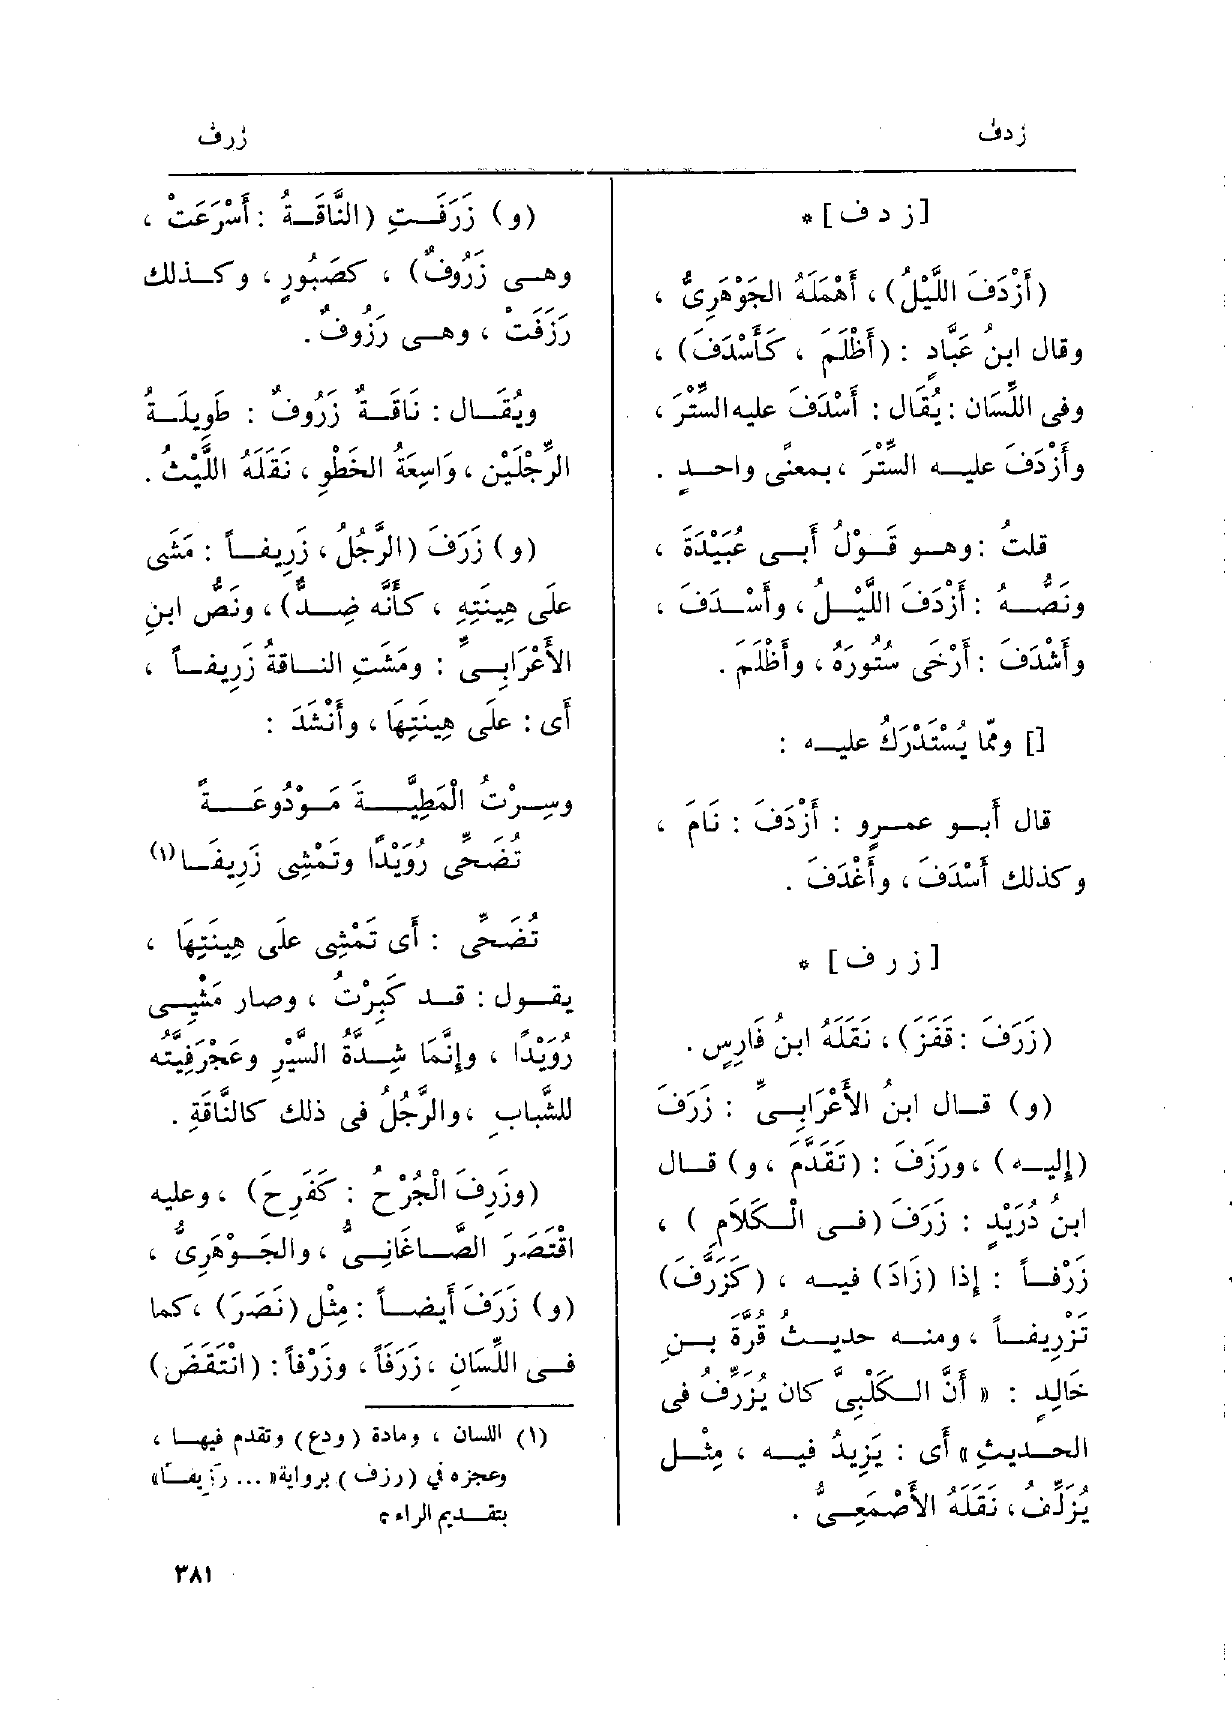 زدف
زرف
[ ز د ف ] *
(أَزْدَفَ اللَّيْلُ) ، أَهْمَلَهُ الجَوْهَرِىُّ ،
وقال ابنُ عَبَّادٍ : (أَظْلَمَ ، كَأَسْدَفَ) ،
وفى اللِّسَان : يُقَال : أَسْدَفَ عليه السِّتْرَ ،
وأَزْدَفَ عليه السِّتْرَ ، بمعنًى واحدٍ .
قلتُ : وهو قَوْلُ أَبى عُبَيْدَةَ ،
ونَصُّهُ : أَزْدَفَ اللَّيْلُ ، وأَسْدَفَ ،
وأَشْدَفَ : أَرْخَى سُتُورَهُ ، وأَظْلَمَ .
[] وممّا يُسْتَدْرَكُ عليه :
قال أَبو عمرٍو : أَزْدَفَ : نَامَ ،
وكذلك أَسْدَفَ ، وأَغْدَفَ .
[ ز ر ف ] *
(زَرَفَ : قَفَزَ) ، نَقَلَهُ ابنُ فَارِسٍ .
(و) قال ابنُ الأَعْرَابىِّ : زَرَفَ
(إِليه) ، ورَزَفَ : (تَقَدَّمَ ، و) قال
ابنُ دُرَيْدٍ : زَرَفَ (فى الْكَلَامِ ) ،
زَرْفاً : إِذا (زَادَ) فيه ، (كَزَرَّفَ)
تَزْرِيفاً ، ومنه حديثُ قُرَّةَ بنِ
خَالِدٍ : « أَنَّ الكَلْبِىَّ كان يُزَرِّفُ فى
الحديثِ » أَى : يَزِيدُ فيه ، مِثْل
يُزَلِّفُ ، نَقَلَهُ الأَصْمَعِىُّ .
(و) زَرَفَتِ (النَّاقَةُ : أَسْرَعَتْ ،
وهى زَرُوفٌ) ، كصَبُورٍ ، وكذلك
رَزَفَتْ ، وهى رَزُوفٌ .
ويُقَال : نَاقَةٌ زَرُوفٌ : طَوِيلَةُ
الرِّجْلَيْن ، وَاسِعَةُ الخَطْوِ ، نَقَلَهُ اللَّيْثُ .
(و) زَرَفَ (الرَّجُلُ ، زَرِيفاً : مَشَى
علَى هِينَتِهِ ، كأَنَّه ضِدٌّ) ، ونَصُّ ابنِ
الأَعْرَابىِّ : ومَشَتِ الناقةُ زَرِيفاً ،
أَى : علَى هِينَتِهَا ، وأَنْشَدَ :
وسِرْتُ الْمَطِيَّةَ مَوْدُوعَةً
تُضَحِّى رُوَيْدًا وتَمْشِى زَرِيفَا (١)
تُضَحِّى : أَى تَمْشِى علَى هِينَتِهَا ،
يقول : قد كَبِرْتُ ، وصار مَشْيِى
رُوَيْدًا ، وإِنَّمَا شِدَّةُ السَّيْرِ وعَجْرَفِيَّتُه
للشَّبابِ ، والرَّجُلُ فى ذلك كالنَّاقَةِ .
(وزَرِفَ الْجُرْحُ : كفَرِحَ) ، وعليه
اقْتَصَرَ الصَّاغَانِىُّ ، والجَوْهَرِىُّ ،
(و) زَرَفَ أَيضاً : مِثْل (نَصَرَ) ، كما
فى اللِّسَانِ ، زَرَفاً ، وزَرْفاً : (انْتَقَضَ)
(١) اللسان ، ومادة (ودع) وتقدم فيها ،
وعجزه في (رزف) برواية « ... رَزِيفَا»
بتقديم الراء ،
٣٨١